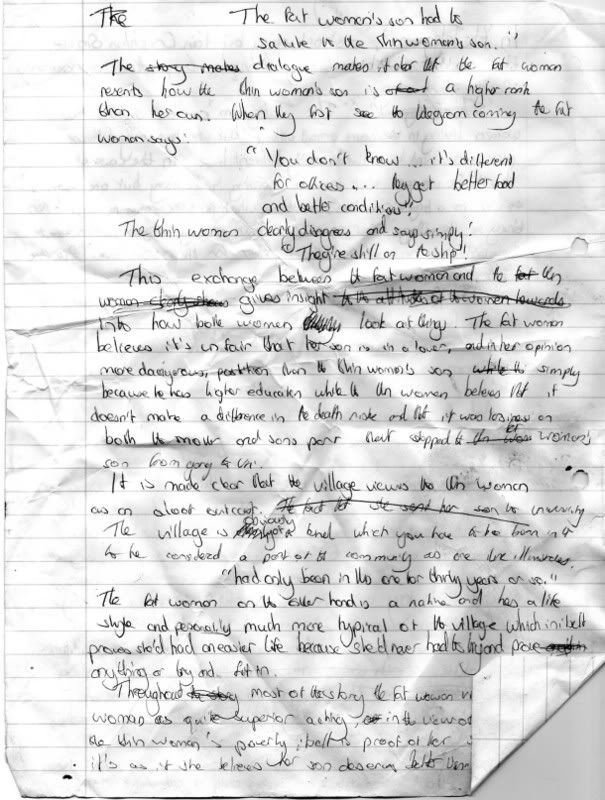 The The fat woman's son had to
salute to the thin woman's son."
The story makes dialogue makes it clear that the fat woman
resents how the thin woman's son is a higher rank
than her own. When they first see the telegram coming the fat
woman says:
"You don't know... it's different
for officers... they get better food
and better conditions."
The thin woman clearly disagrees and says simply:
"They're still on the ship!"
This exchange between the fat woman and the fat thin
woman gives insight to the attitudes of the women towards
into how both women look at things. The fat woman
believes it's unfair that her son is in a lower, and in her opinion
more dangerous, position than the thin woman's son while the simply
because he has higher education while the thin women believes that it
doesn't make a difference in the death risk and that it was laziness on
both the mother and sons part that stopped the fat woman's
son from going to Uni.
It is made clear that the village views the thin woman
as an aloof outcast. The fact that she sent her son to university
The village is obviously kind which you have to be born in it
to be considered a part of the community as one line illustrates.
"had only been in this one for thirty years or so."
The fat woman on the other hand is a native and has a life
style and personality much more typical of the village which in itself
proves she'd had an easier life because she'd never had to try and prove
anything or try and fit in.
Throughout the story most of the story the fat woman
woman as quite superior acting, in the view of
the thin woman's poverty itself is proof of her
it's as if she believes her son deserves better